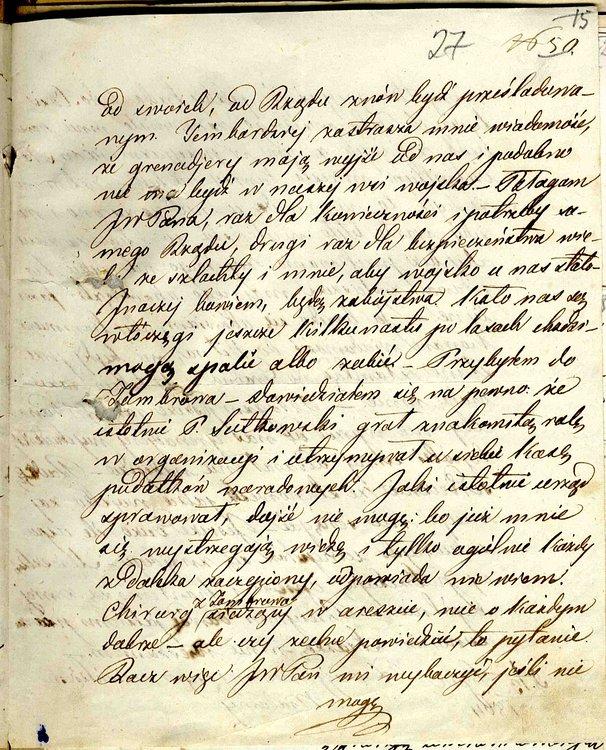 15
27 50.
od swoich, od Rządu znów być prześladowa-
nym. Jeinbardziej zastrasza mnie wiadomość,
że grenadjery mają wyjść od nas i podobno
nie ma być w naszej wsi wojska. – Błagam
JW Pana, raz dla konieczności i potrzeby sa-
mego Rządu, drugi raz dla bezpieczeństwa wie-
lu ze szlachty i mnie, aby wojsko u nas stało
Inaczej bowiem, będą zabójstwa. Koło nas są
włóczęgi jeszcze kilkunastu po lasach
mogą spalić albo zabić. – Przybyłem do
Zambrowa – dowiedziałem się na pewno: że
istotnie P. Sutkowski grał znakomitą rolę
w organizacji i utrzymywał u siebie kasę
podatków narodowych. Jaki istotnie urząd
sprawował, dojść nie mogę: bo już mnie
się wystrzegają wieżę i tylko ogólnie każdy
z Polaków zaczepiony, odpowiada nie wiem.
Chirurg z Zambrowa siedzący w areszcie, wie o każdym
dobrze – ale czy zechce powiedzieć, to pytanie
Racz więc JW Pan mi wybaczyć, jeśli nie
mogę